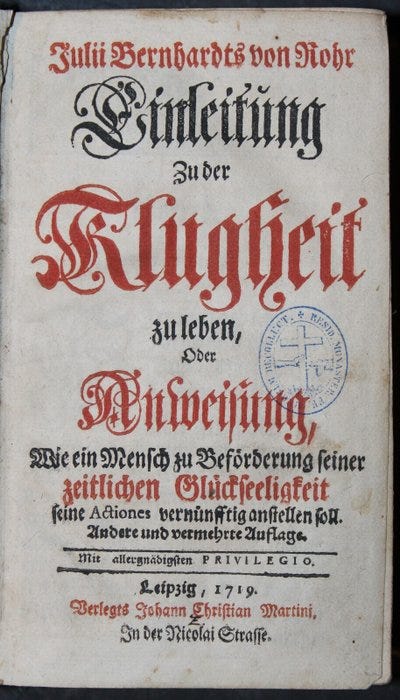 Julii Bernhardts von Rohr
Einleitung
Zu der
Klugheit
zu leben,
Oder
Anweisung,
Wie ein Mensch zu Beförderung seiner
zeitlichen Glückseeligkeit
seine Actiones vernünfftig anstellen soll.
Andere und vermehrte Auflage.
Mit allergnädigsten PRIVILEGIO.
Leipzig, 1719.
Verlegts Johann Christian Martini,
In der Nicolai Strasse.
RESID. MONASTER.